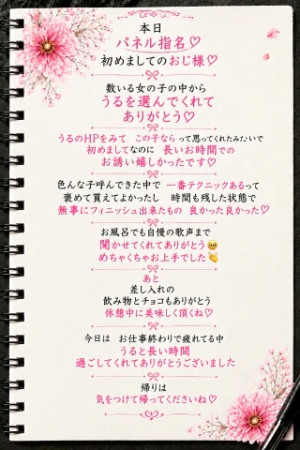 本日
パネル指名♡
初めましてのおじ様♡
数いる女の子の中から
うるを選んでくれて
ありがとう♡
うるのHPをみて この子なら って思ってくれたみたいで
初めましてなのに 長いお時間での
お誘い嬉しかったです♡
色んな子呼んできた中で 一番テクニックあるって
褒めて貰えてよかったし 時間も残した状態で
無事にフィニッシュ出来たもの 良かった良かった♡
お風呂でも自慢の歌声まで
聞かせてくれてありがとう🥹
めちゃくちゃお上手でした👏
あと
差し入れの
飲み物とチョコもありがとう
休憩中に美味しく頂くね♡
今日は お仕事終わりで疲れてる中
うると長い時間
過ごしてくれてありがとうございました
帰りは
気をつけて帰ってくださいね♡